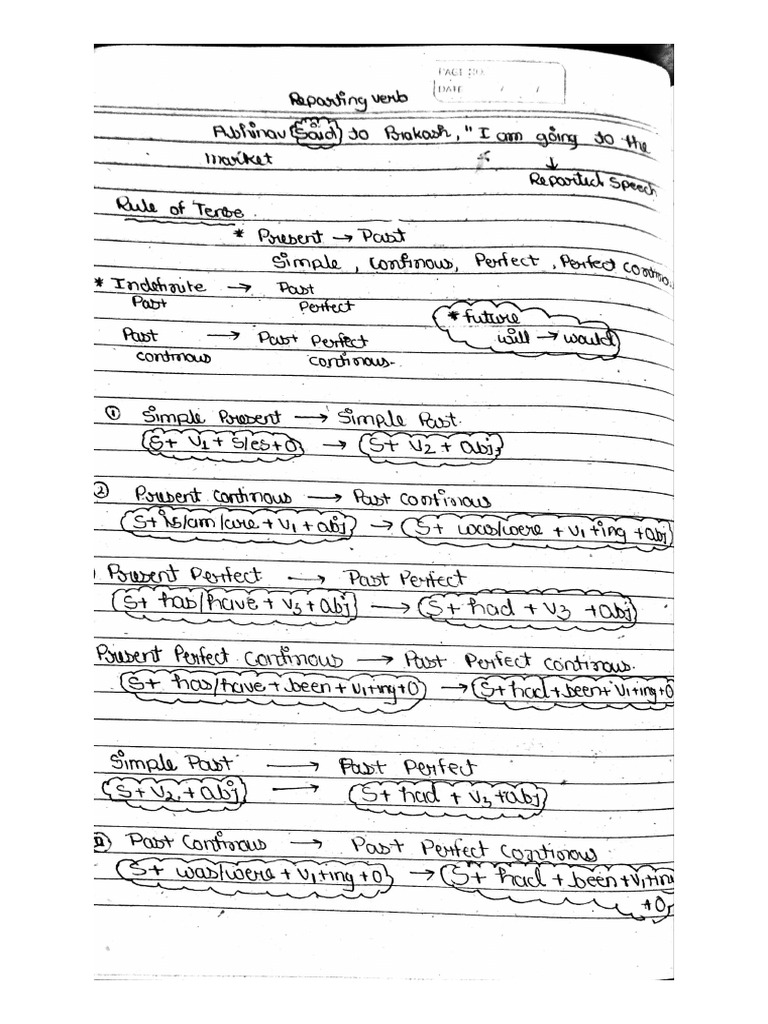 PAGE NO.
DATE / /
Reporting verb
Abhinav Said to Prakash, "I am going to the
market
↓
Reported Speech
Rule of Tense
* Present → Past
Simple, Continous, Perfect, Perfect
* Indefinite → Past
Past Perfect
* future
will → would
Past → Past Perfect
continous continous.
① Simple Present → Simple Past.
S+ V1 + S/es+O → S+ V2 + obj
② Present continous → Past continous
S+is/am/are + V1 + obj → S+ was/were + V1 +ing +obj
) Present Perfect → Past Perfect
S+ has/have + V3 + obj → S+ had + V3 +obj
Present Perfect continous → Past Perfect continous.
S+ has/have + been + V1+ing+O → S+had+been+V1+ing+O
Simple Past → Past Perfect
S+V2+obj → S+ had + V3+obj
Past Continous → Past Perfect continous
S+ was/were + V1+ing+O → S+ had + been+V1+ing
+O